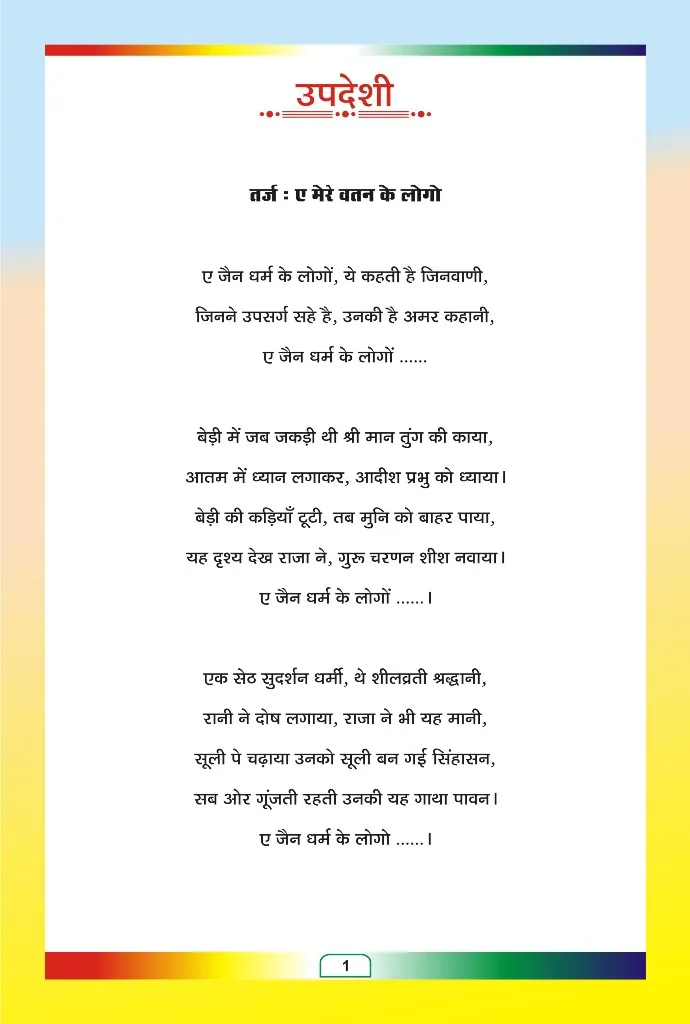 उपदेशी
तर्ज : ए मेरे वतन के लोगो
ए जैन धर्म के लोगों, ये कहती है जिनवाणी,
जिनने उपसर्ग सहे है, उनकी है अमर कहानी,
ए जैन धर्म के लोगों ......
बेड़ी में जब जकड़ी थी श्री मान तुंग की काया,
आतम में ध्यान लगाकर, आदीश प्रभु को ध्याया।
बेड़ी की कड़ियाँ टूटी, तब मुनि को बाहर पाया,
यह दृश्य देख राजा ने, गुरू चरणन शीश नवाया।
ए जैन धर्म के लोगों ......।
एक सेठ सुदर्शन धर्मी, थे शीलव्रती श्रद्धानी,
रानी ने दोष लगाया, राजा ने भी यह मानी,
सूली पे चढ़ाया उनको सूली बन गई सिंहासन,
सब ओर गूंजती रहती उनकी यह गाथा पावन।
ए जैन धर्म के लोगो ......।
1